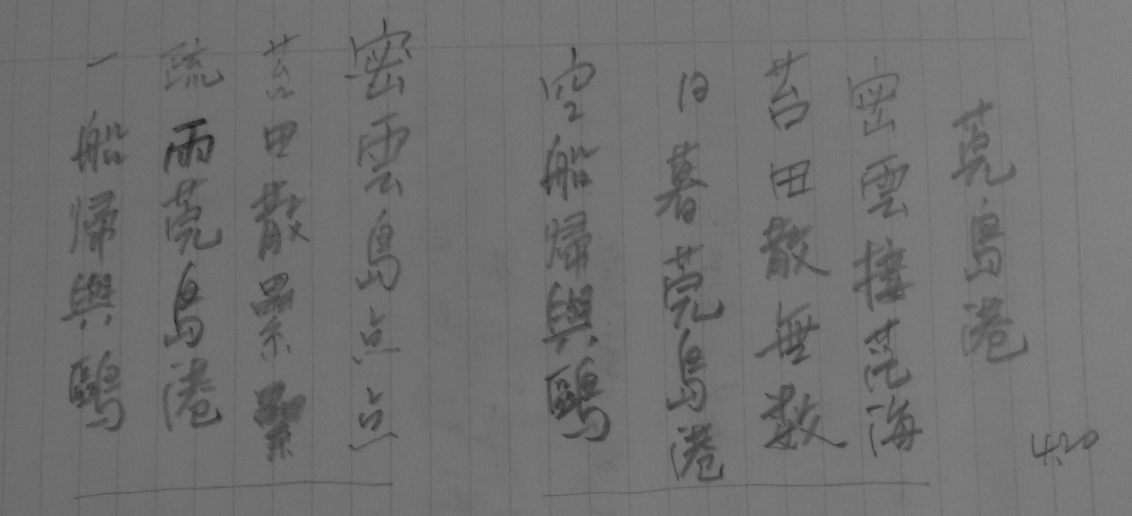 莞島港
4.20
密雲接茫海
苔田散無数
日暮莞島港
空船帰與鷗
密雲島点点
苔田散累累
疏雨莞島港
一船帰與鷗